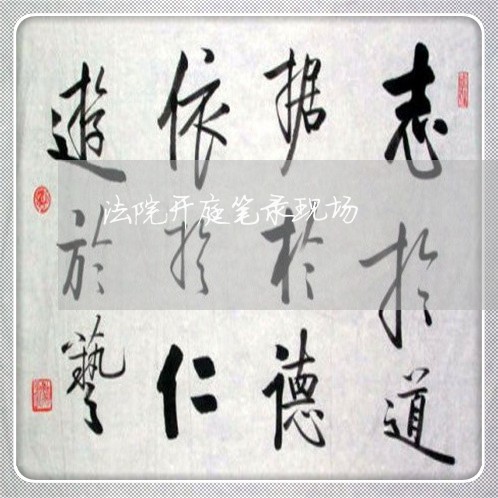 志於道
据於德
依於仁
遊於藝
法院开庭笔录现场